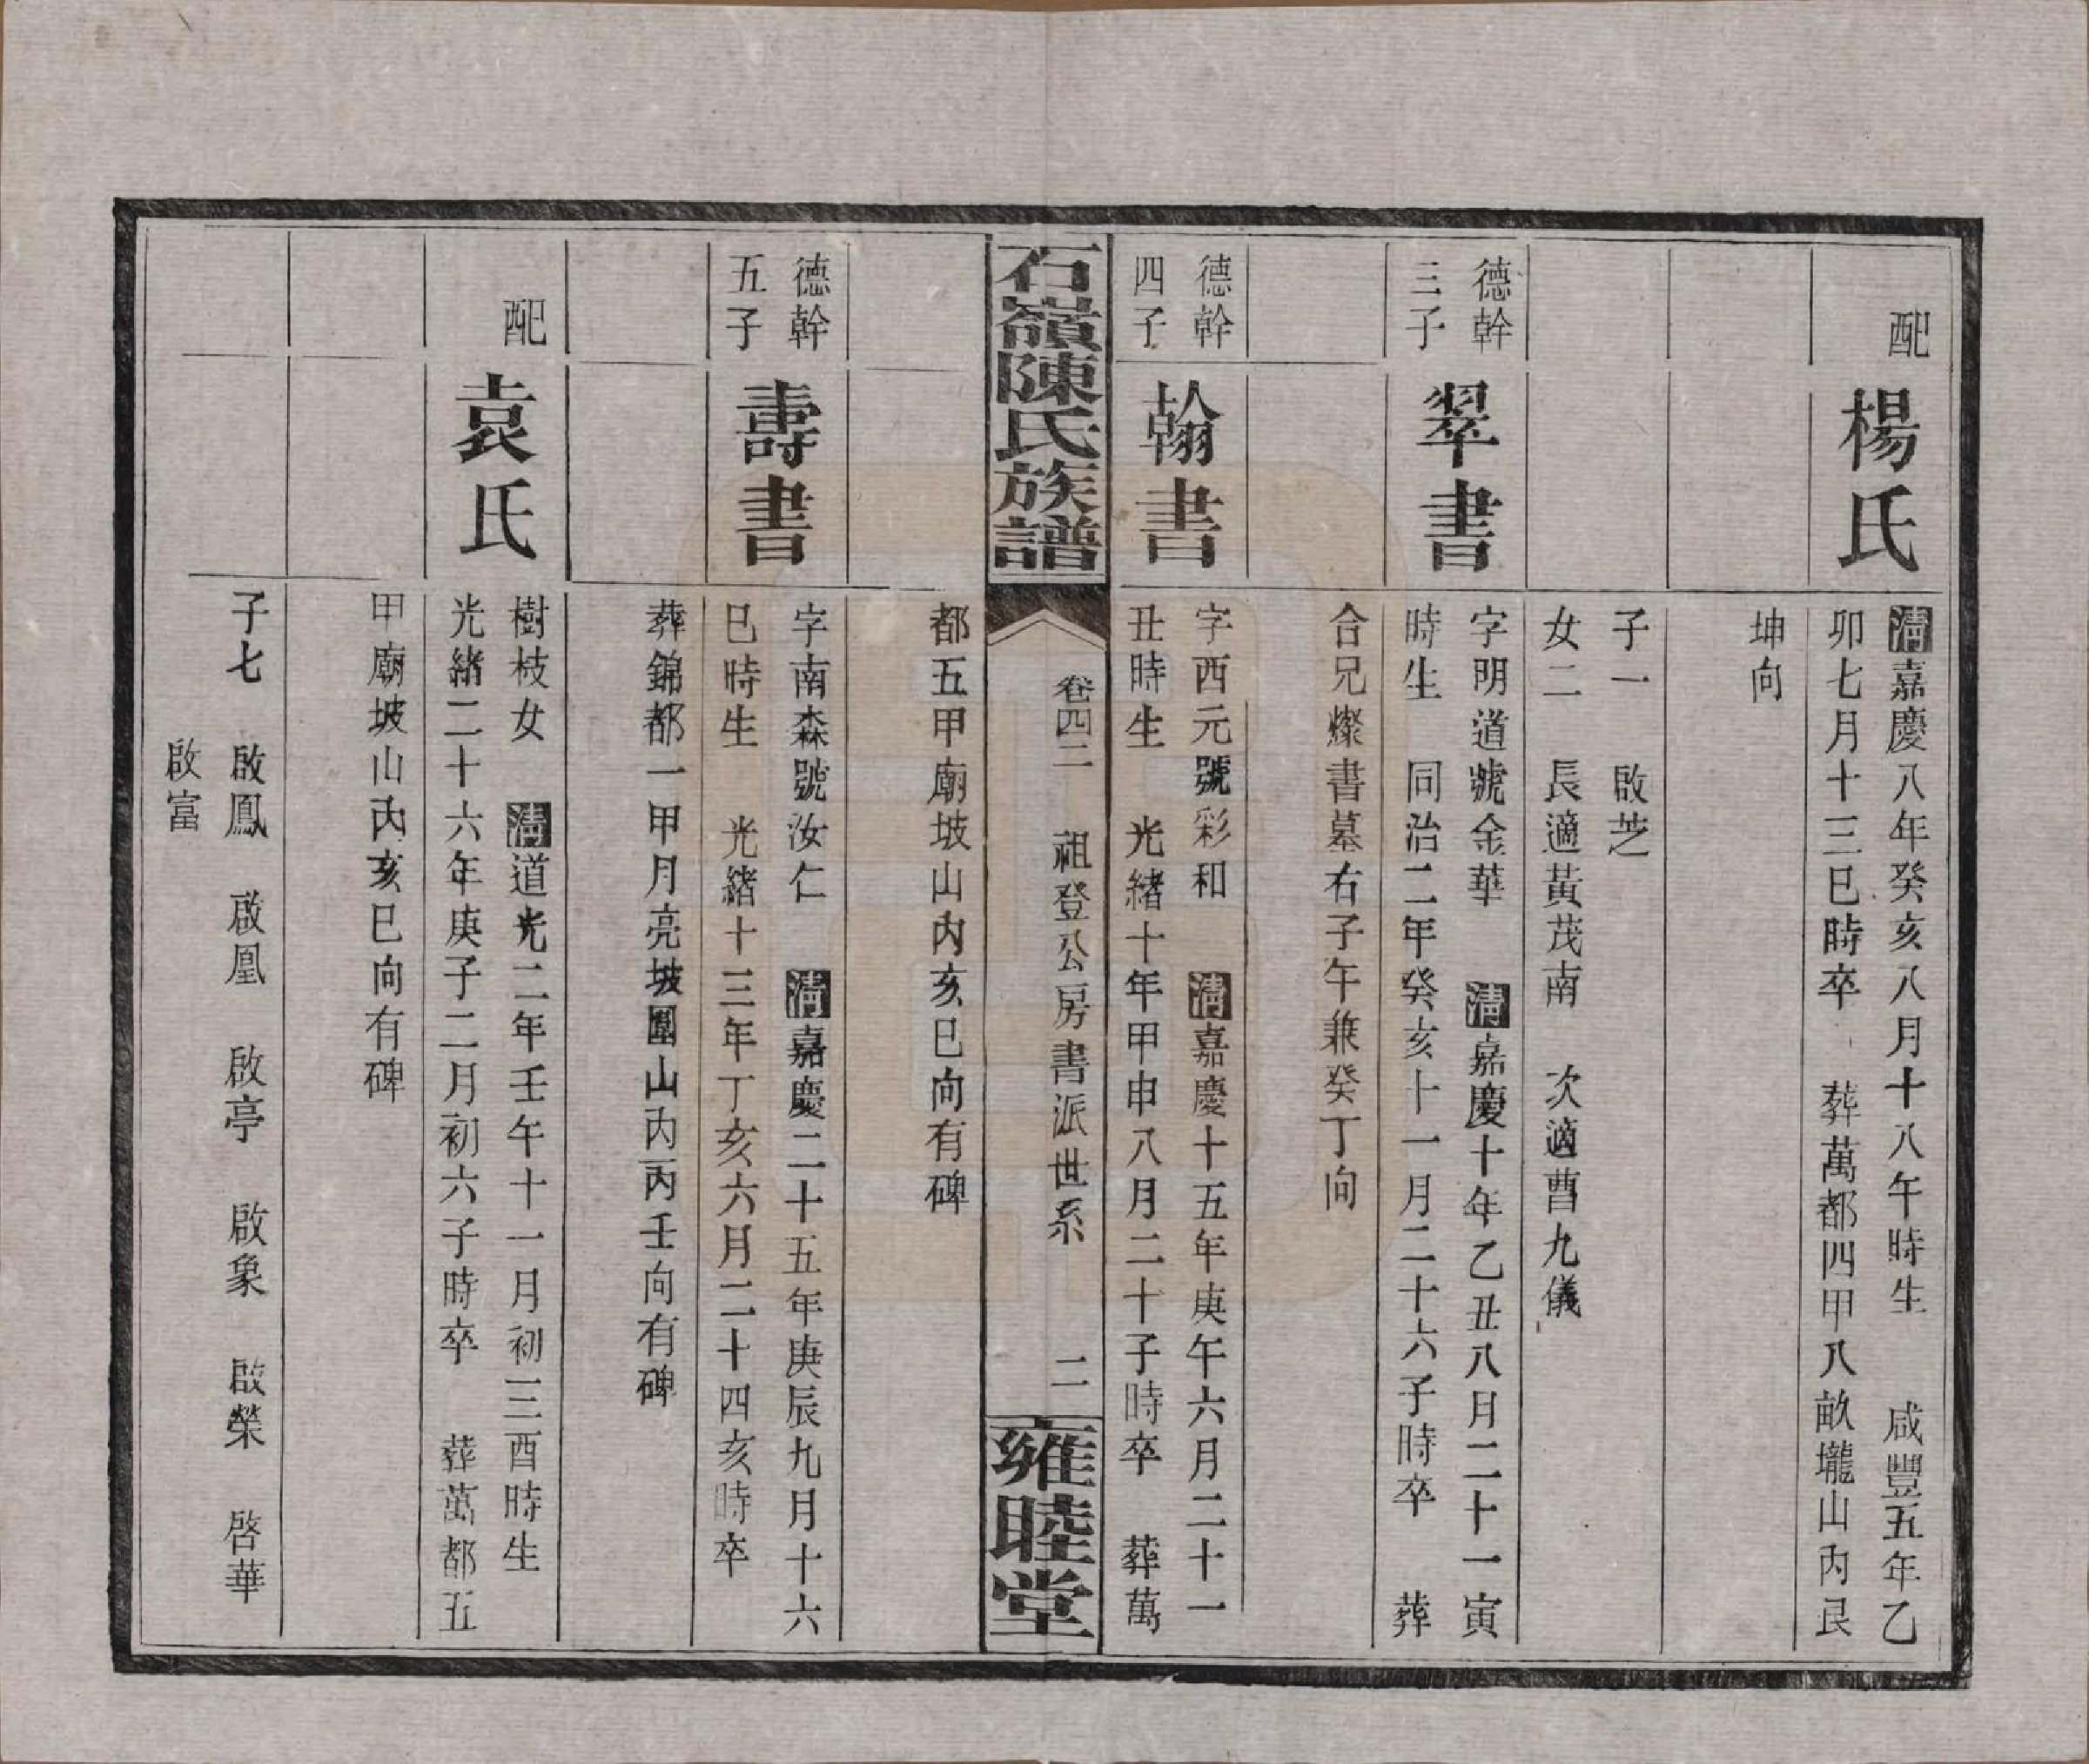 配
楊氏
清嘉慶八年癸亥八月十八午時生　咸豐五年乙
卯七月十三巳時卒　葬萬都四甲八畝壠山內艮
坤向
子一　啟芝
女二　長適黃茂南　次適曹九儀
德幹
三子
翠書
字明道號金華　清嘉慶十年乙丑八月二十一寅
時生　同治二年癸亥十一月二十六子時卒　葬
合兄燦書墓右子午兼癸丁向
德幹
四子
翰書
字西元號彩和　清嘉慶十五年庚午六月二十一
丑時生　光緒十年甲申八月二十子時卒　葬萬
石嶺陳氏族譜
卷四二　祖登公房書派世系　二
雍睦堂
都五甲廟坡山內亥巳向有碑
德幹
五子
壽書
字南森號汝仁　清嘉慶二十五年庚辰九月十六
巳時生　光緒十三年丁亥六月二十四亥時卒
葬錦都一甲月亮坡圍山內丙壬向有碑
配
袁氏
樹枝女　清道光二年壬午十一月初三酉時生
光緒二十六年庚子二月初六子時卒　葬萬都五
甲廟坡山內亥巳向有碑
子七　啟鳳　啟凰　啟亭　啟象　啟榮　啓華
啟富